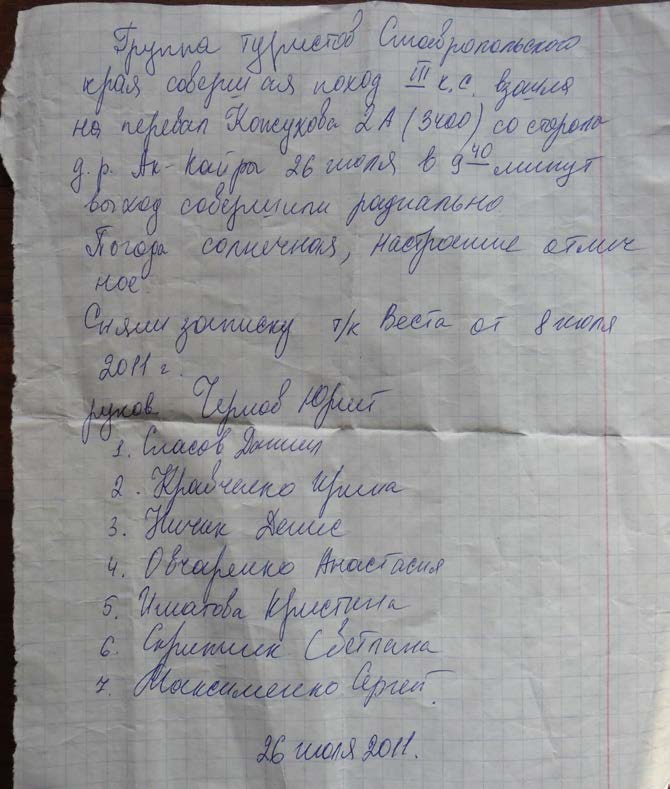 Группа туристов Ставропольского
края совершая поход III к.с. взошла
на перевал Кожухова 2А (3400) со стороны
д.р. Ак-Кайры 26 июля в 9 40 минут
выход совершили радиально.
Погода солнечная, настроение отлич
ное.
Сняли записку т/к Веста от 8 июля
2011 г.
руков Юрий
1. Спасов Даниил
2. Кравченко Ирина
3. Ничик Денис
4. Овчаренко Анастасия
5. Иматова Кристина
6. Скрипник Светлана
7. Максименко Сергей.
26 июля 2011.